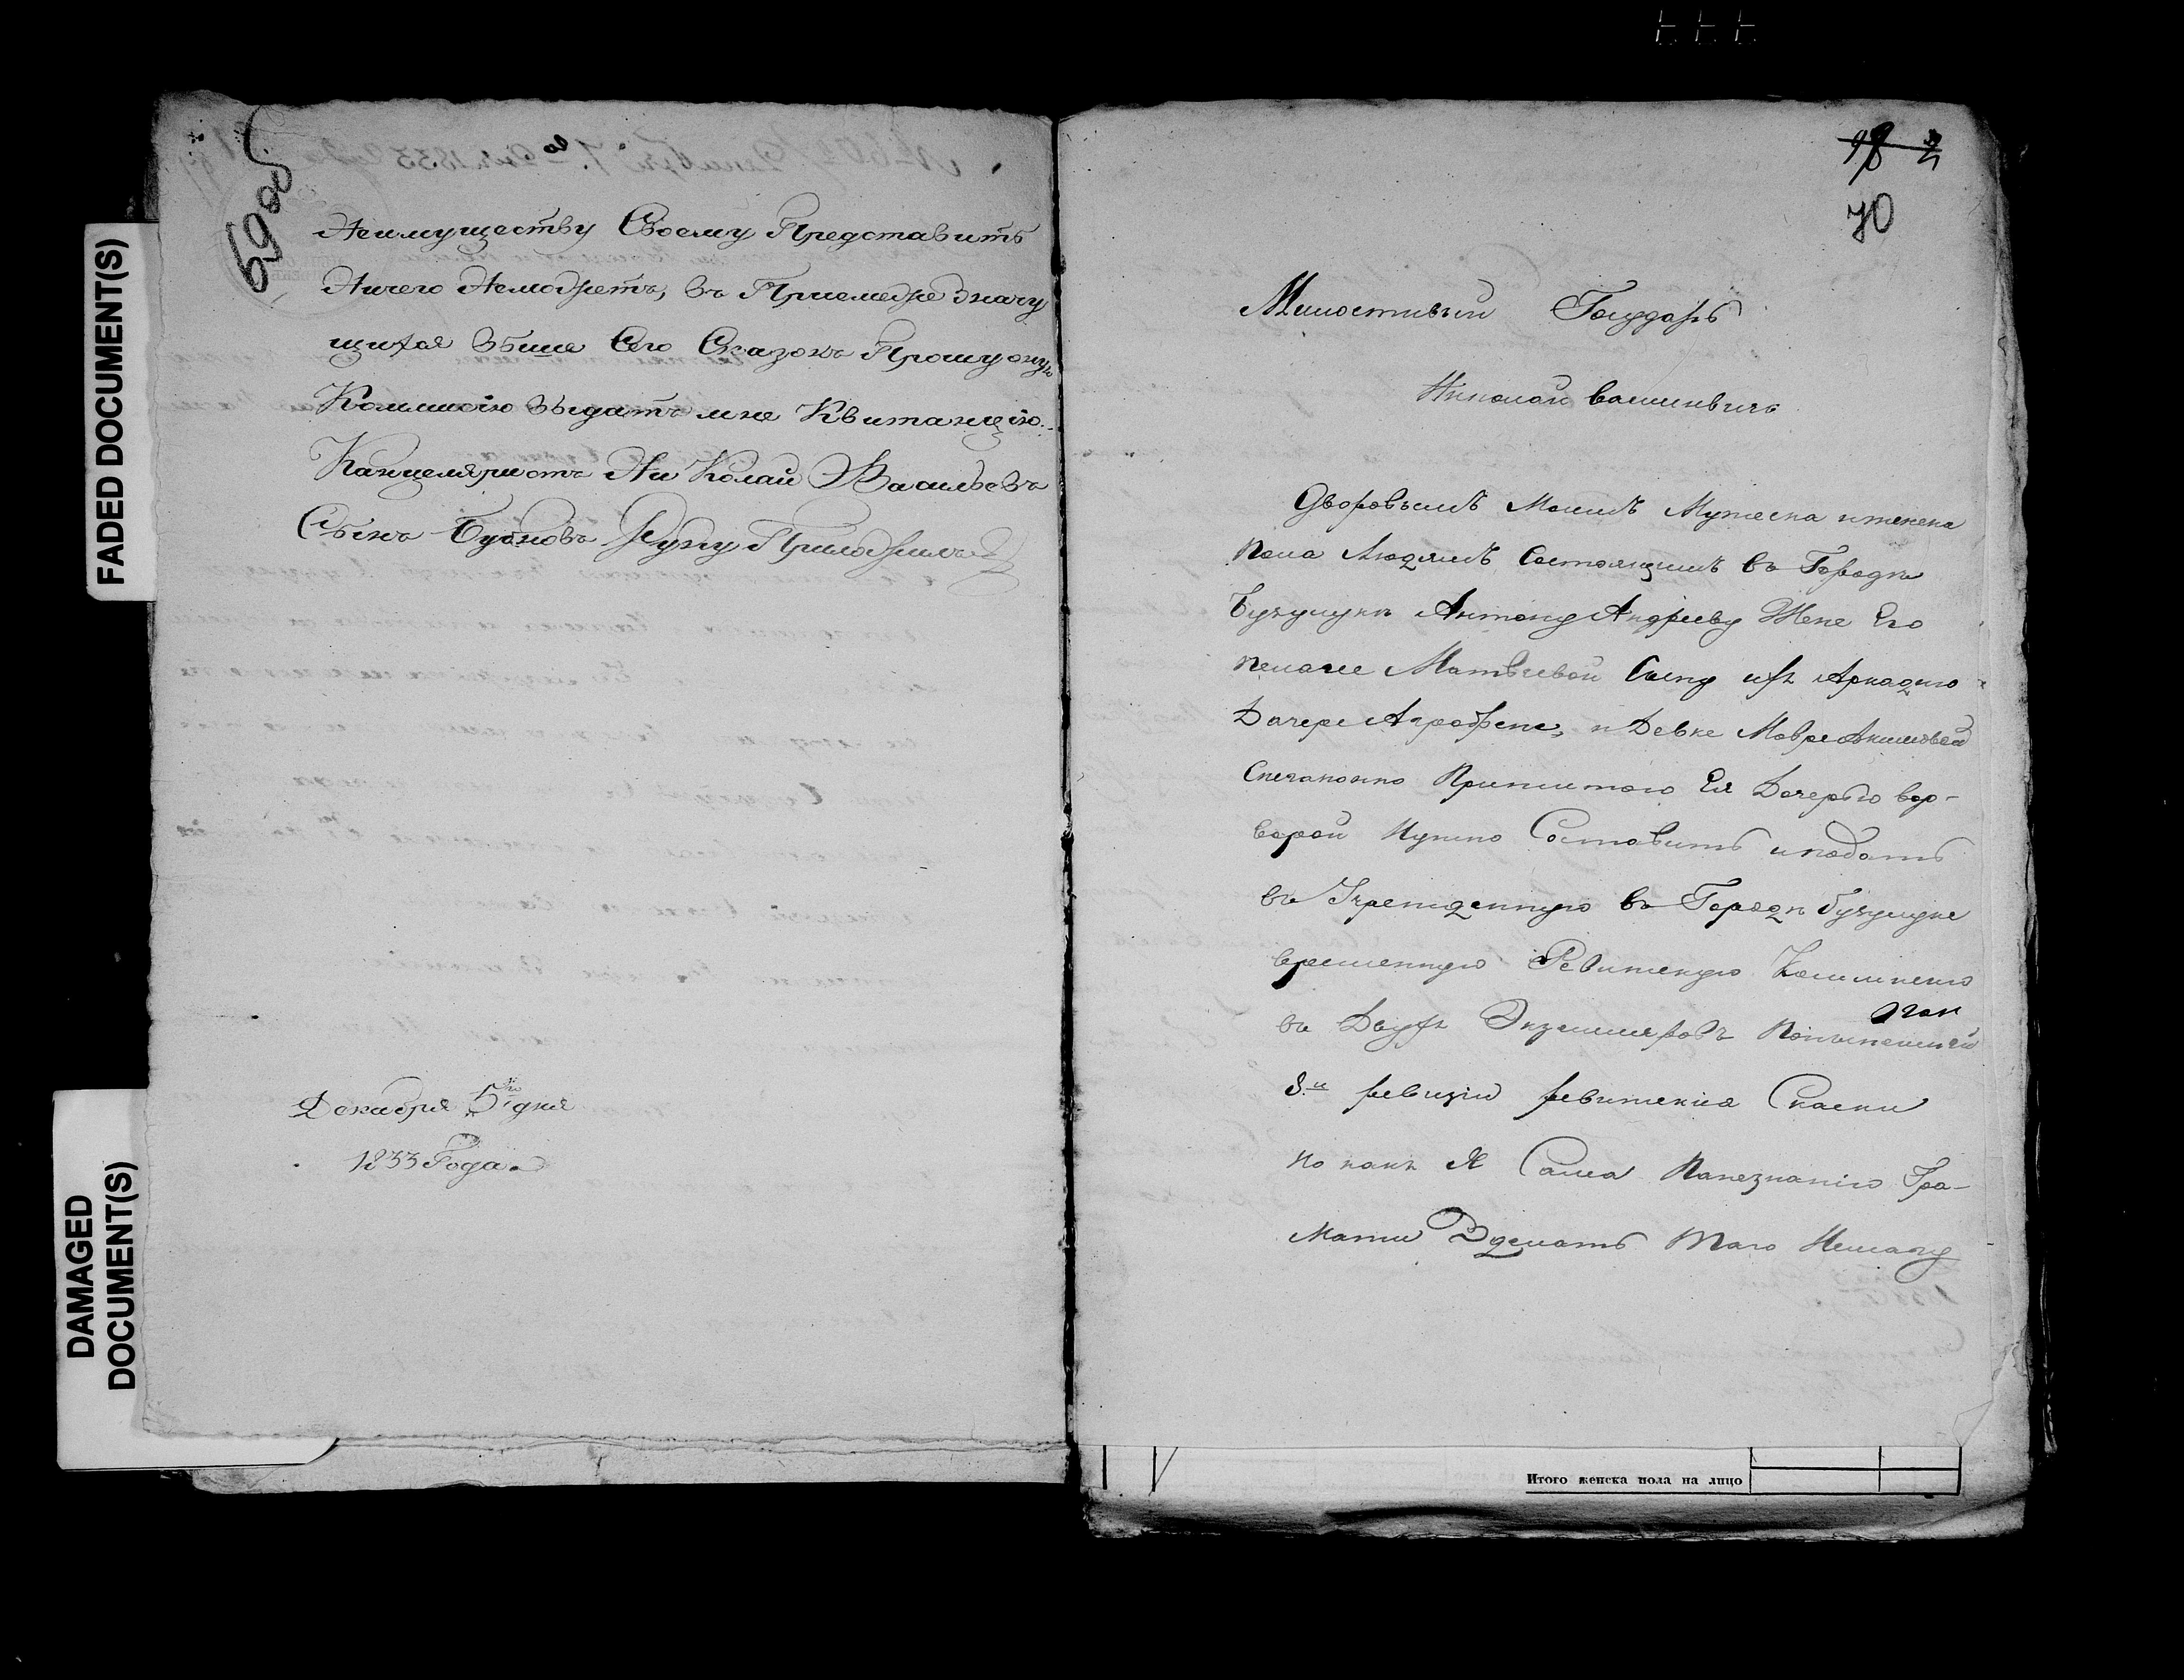 FADED DOCUMENT(S)
DAMAGED
DOCUMENT(S)
69 об
Неимуществу Своему Представить
Ничего Неможетъ, въ Приемеже значу
щихся выше Сего Сказокъ Прошу оную
Коммисію выдать мне Квитанцію.
Канцеляристъ Ни Колай Васильевъ
Сынъ Буяновъ Руку Приложилъ
Декабря 5го дня
1833 Года
70
Милостивый Государь
Николай васильевичь
Дворовымъ Моимъ Мужеска иженска
пола Людямъ Состоящимъ въ Городѣ
Бузулукѣ Антону Андрееву Жене Его
пелагее Матвеевой Сыну ихъ Аркадию
Дочере Аграфене, и Девке Мавре Акимовой
Снезаконно Прижитою Ея Дочерью вар-
варой Нужно Составить иподать
въ Учрежденную въ Городѣ бузулуке
временную Ревижскую Коммисию
въ Двухъ Экземплярахъ Понынешней
8й ревизіи ревижскія Скаски
но какъ Я Сама Понезнанію Гра-
маты Зделать Того Немогу
Итого женска пола на лицо